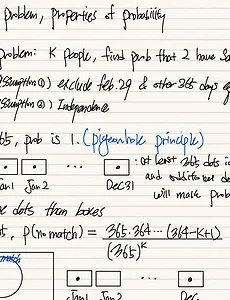 problem, properties of probability
problem: K people, find prob that 2 have sa
(Assumption ①) exclude feb. 29 & other 365 days e
(Assumption ②) Independence
65, prob is 1. (pigeonhole principle)
· at least 365 dots i
Jan1 Jan2 ... Dec31 and additional do
will make prob
e dots than boxes
P(no match) = 365·364··· (364-K+1)
(365)^K
match
...
Dec